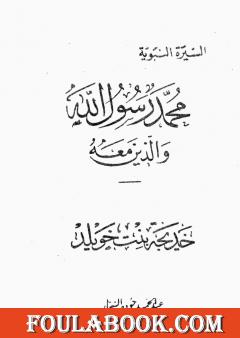 السيرة النبوية
محمد رسول الله
والذين معه
خديجة بنت خويلد
FOULABOOK.COM